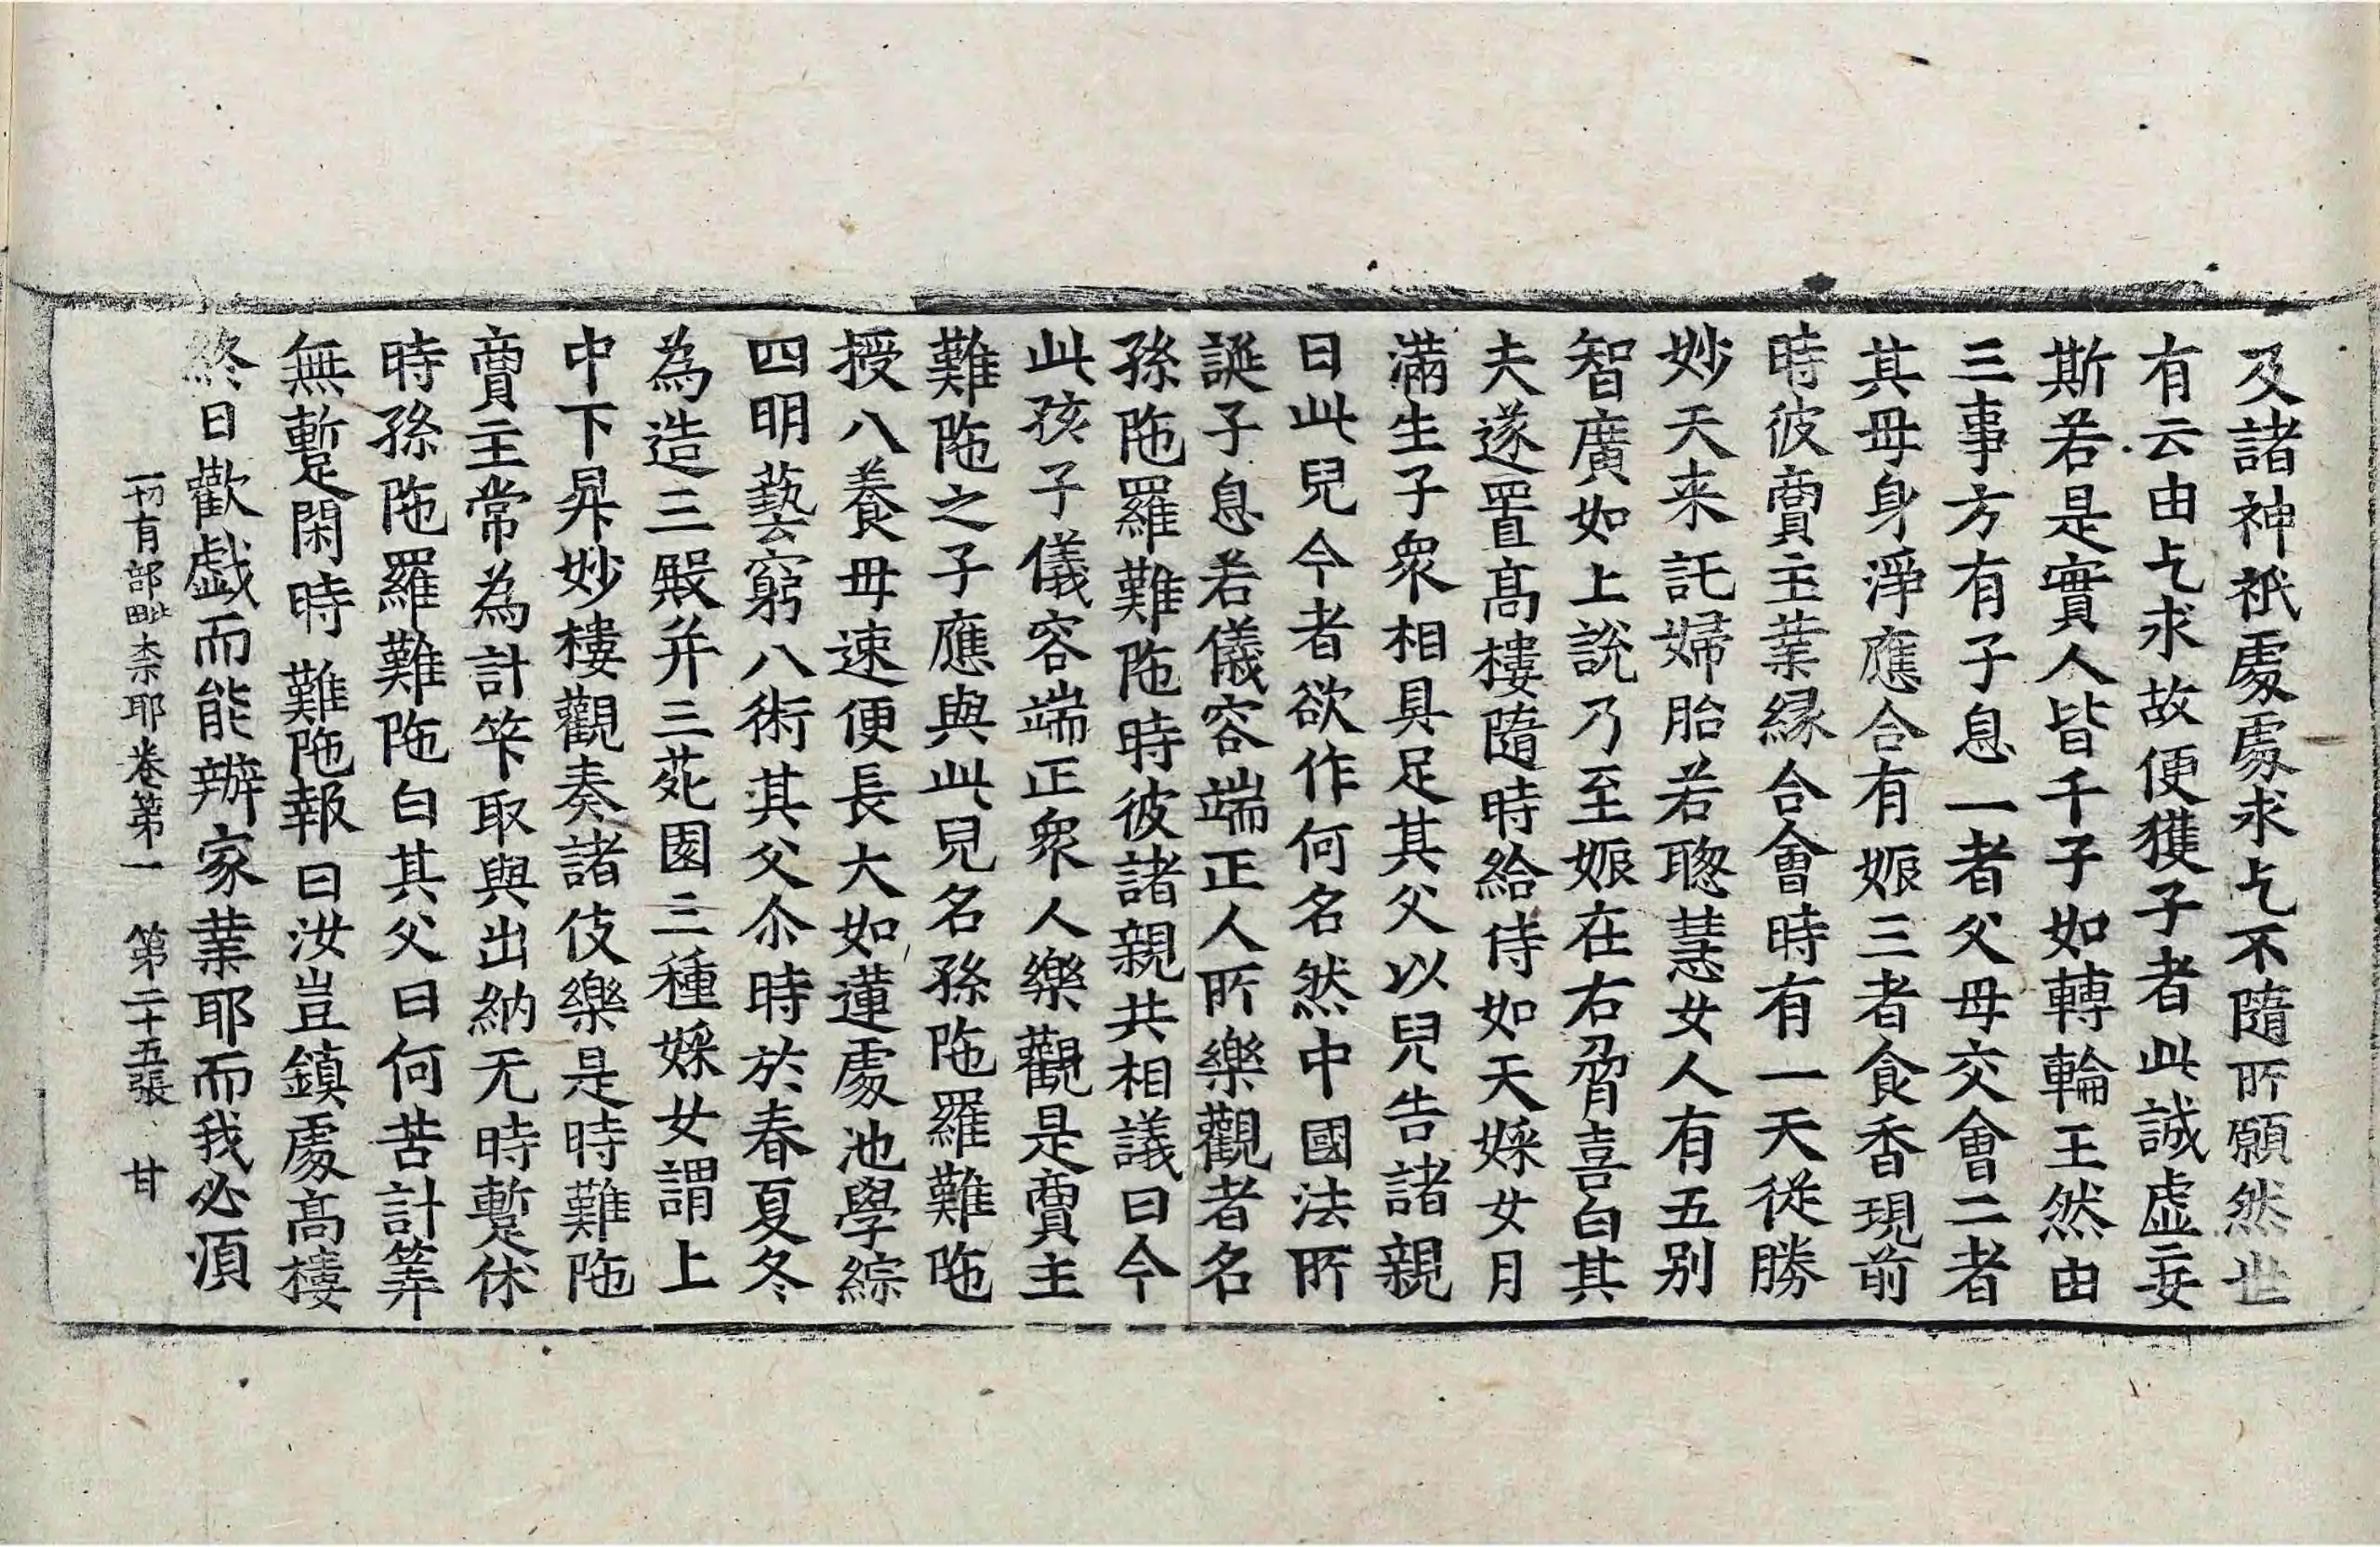 及諸神祇處處求乞不隨所願然世
有云由乞求故便獲子者此誠虛妄
斯若是實人皆千子如轉輪王然由
三事方有子息一者父母交會二者
其母身淨應合有娠三者食香現前
時彼賣主業緣合會時有一天從勝
妙天来託婦胎若聦慧女人有五別
智廣如上說乃至娠在右脅喜白其
夫遂置髙樓隨時給侍如天婇女月
滿生子衆相具足其父以兒告諸親
曰此兒今者欲作何名然中國法所
誕子息若儀容端正人所樂觀者名
孫陁羅難陁時彼諸親共相議曰今
此孩子儀容端正衆人樂觀是賣主
難陁之子應與此兒名孫陁羅難陁
授八養母速便長大如蓮處池學綜
四明藝窮八術其父尒時於春夏冬
為造三殿并三苑園三種婇女謂上
中下昇妙樓觀奏諸伎樂是時難陁
賣主常為計筭取與出納无時暫休
時孫陁羅難陁白其父曰何苦計筭
無暫閑時難陁報曰汝豈鎮處髙樓
終日歡戲而能辦家業耶而我必須
一切有部毗柰耶卷第一　第二十五張　甘